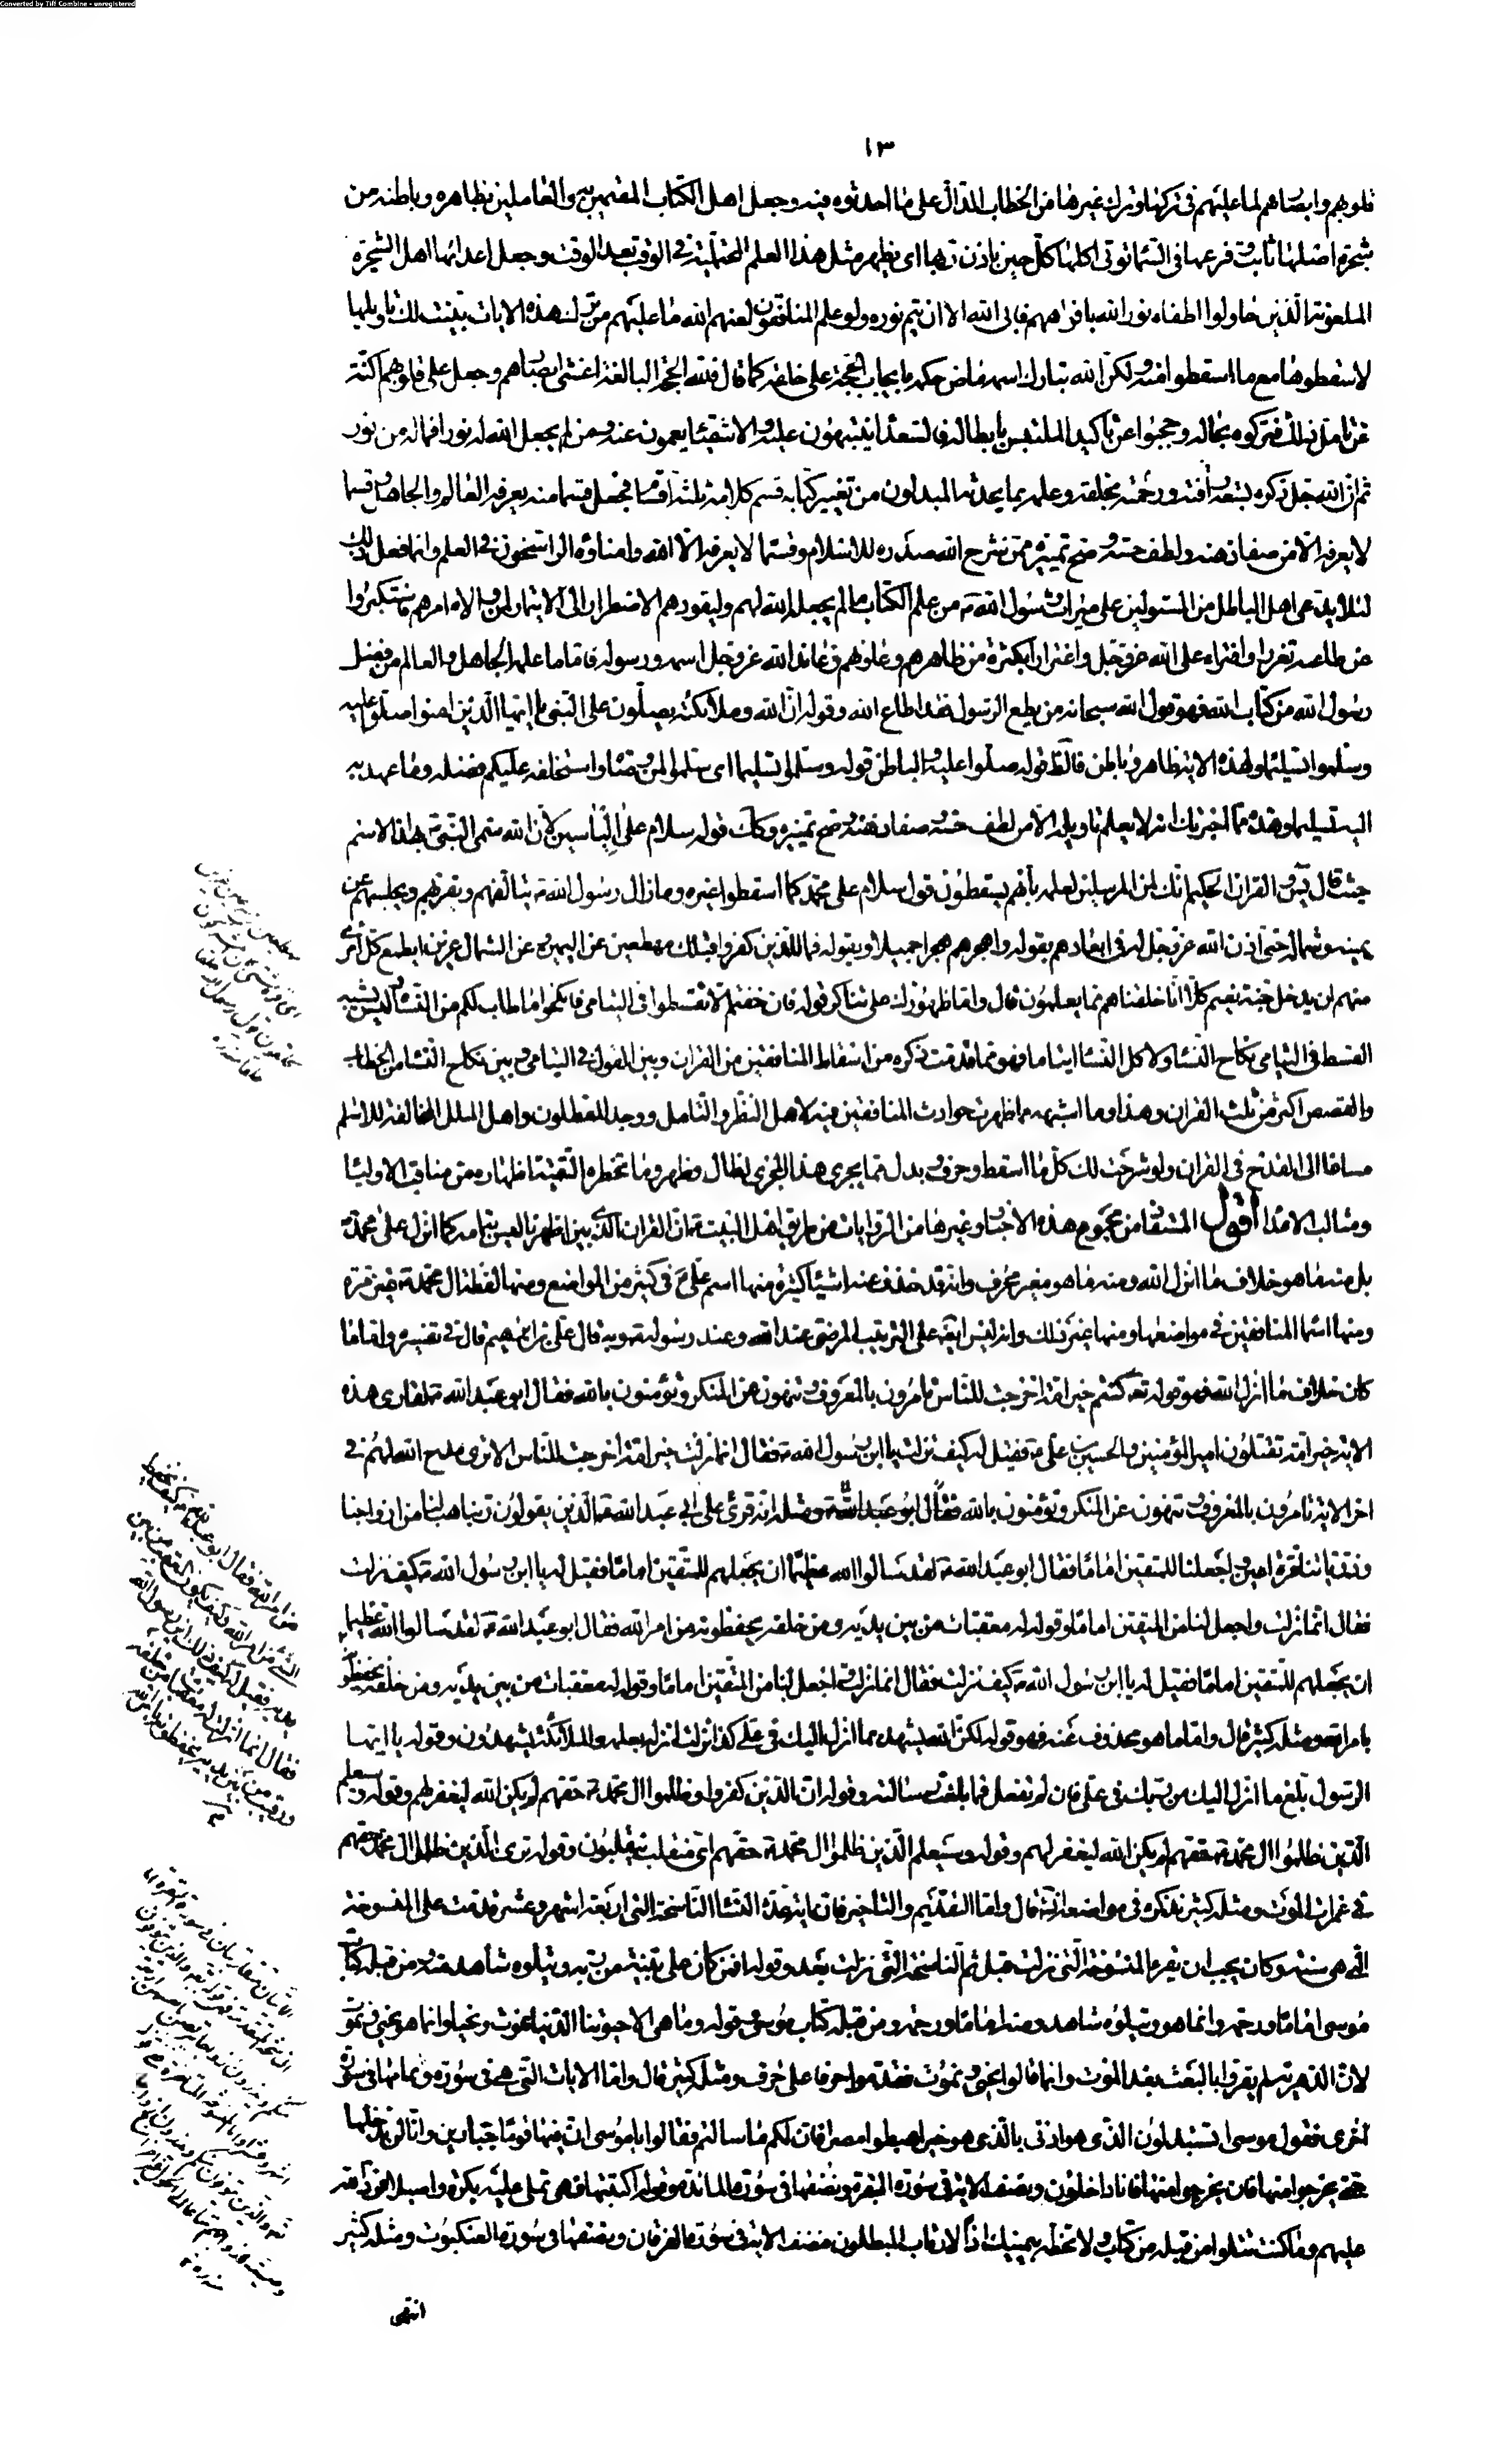 Converted by Tiff Combine - unregistered
١٣
قلوبهم وابصارهم لما عليهم فى تركها وترك غيرها من الخطاب الدال على ما احدثوه فيه وجعل اهل الكتاب المقيمين به والعاملين بظاهره وباطنه من
شجرة اصلها ثابت وفرعها فى السماء توتى اكلها كل حين باذن ربها اى يظهر مثل هذا العلم لمحتمليه فى الوقت بعد الوقت وجعل اعدائها اهل الشجرة
الملعونة الذين حاولوا اطفاء نور الله بافواههم فابى الله الا ان يتم نوره ولو علم المنافقون لعنهم الله ما عليهم من ترك هذه الايات بينت لك تاويلها
لاسقطوها مع ما اسقطوا منه ولكن الله تبارك اسمه ماض حكمه بايجاب الحجة على خلقه كما قال فلله الحجة البالغة اغشى ابصارهم وجعل على قلوبهم اكنة
عن تامل ذلك فتركوه بحاله وحجبوا عن تاكيد الملتبس بابطاله فالسعداء ينتبهون عليه والاشقياء يعمون عنه ومن لم يجعل الله له نورا فماله من نور
ثم ان الله جل ذكره لسعة رافته ورحمته بخلقه وعلمه بما يحدثه المبدلون من تغيير كتابه قسم كلامه ثلثة اقسام فجعل قسما منه يعرفه العالم والجاهل وقسما
لا يعرفه الا من صفا ذهنه ولطف حسه وصح تمييزه ممن شرح الله صدره للاسلام وقسما لا يعرفه الا الله وامناؤه الراسخون فى العلم وانما فعل ذلك
لئلا يدعى اهل الباطل من المستولين على ميراث رسول الله ص من علم الكتاب ما لم يجعله الله لهم وليقودهم الاضطرار الى الايتمار لمن ولاه امرهم فاستكبروا
عن طاعته تعززا وافتراء على الله عز وجل واغترارا بكثرة من ظاهرهم وعاونهم وعاند الله عز وجل اسمه ورسوله فاما ما علمه الجاهل والعالم من فضل
رسول الله من كتاب الله فهو قول الله سبحانه من يطع الرسول فقد اطاع الله وقوله ان الله وملائكته يصلون على النبى يا ايها الذين امنوا صلوا عليه
وسلموا تسليما ولهذه الاية ظاهر وباطن فالظاهر قوله صلوا عليه والباطن قوله وسلموا تسليما اى سلموا لمن وصاه واستخلفه عليكم فضله وما عهد به
اليه تسليما وهذا مما اخبرتك انه لا يعلم تاويله الا من لطف حسه وصفا ذهنه وصح تمييزه وكك قوله سلام على ال ياسين لان الله سمى النبى ص بهذا الاسم
حيث قال يس والقران الحكيم انك لمن المرسلين لعلمه بانهم يسقطون قول سلام على محمد كما اسقطوا غيره وما زال رسول الله ص يتالفهم ويقربهم ويجلسهم عن
يمينه وشماله حتى اذن الله عز وجل له فى ابعادهم بقوله واهجرهم هجرا جميلا وبقوله فما للذين كفروا قبلك مهطعين عن اليمين وعن الشمال عزين ايطمع كل امرئ
منهم ان يدخل جنة نعيم كلا انا خلقناهم مما يعلمون قال واما ظهورك على تناكر قوله فان خفتم الا تقسطوا فى اليتامى فانكحوا ما طاب لكم من النساء وليس يشبه
القسط فى اليتامى نكاح النساء ولا كل النساء ايتاما فهو مما قدمت ذكره من اسقاط المنافقين من القران وبين القول فى اليتامى وبين نكاح النساء من الخطاب
والقصص اكثر من ثلث القران وهذا وما اشبهه مما ظهرت حوادث المنافقين فيه لاهل النظر والتامل ووجد المعطلون واهل الملل المخالفة للاسلام
مساغا الى القدح فى القران ولو شرحت لك كل ما اسقط وحرف وبدل مما يجرى هذا المجرى لطال وظهر ما تحظره التقية اظهاره من مناقب الاولياء
ومثالب الاعداء اقول المستفاد من مجموع هذه الاخبار وغيرها من الروايات من طريق اهل البيت ع ان القران الذى بين اظهرنا ليس بتمامه كما انزل على محمد ص
بل منه ما هو خلاف ما انزل الله ومنه ما هو مغير محرف وانه قد حذف عنه اشياء كثيرة منها اسم على ع فى كثير من المواضع ومنها لفظة ال محمد ص غير مرة
ومنها اسماء المنافقين فى مواضعها ومنها غير ذلك وانه ليس ايضا على الترتيب المرضى عند الله وعند رسوله ص وبه قال على بن ابراهيم قال فى تفسيره واما ما
كان خلاف ما انزل الله فهو قوله تعالى كنتم خير امة اخرجت للناس تامرون بالمعروف وتنهون عن المنكر وتؤمنون بالله فقال ابو عبد الله ع لقارى هذه
الاية خير امة تقتلون امير المؤمنين والحسين بن على ع فقيل له كيف نزلت يا ابن رسول الله ص فقال انما نزلت خير ائمة اخرجت للناس الا ترى مدح الله لهم فى
اخر الاية تامرون بالمعروف وتنهون عن المنكر وتؤمنون بالله ومثله انه قرئ على ابى عبد الله ع الذين يقولون ربنا هب لنا من ازواجنا
وذرياتنا قرة اعين واجعلنا للمتقين اماما فقال ابو عبد الله ع لقد سالوا الله عظيما ان يجعلهم للمتقين اماما فقيل له يا ابن رسول الله ص كيف نزلت
فقال انما نزلت واجعل لنا من المتقين اماما وقوله له معقبات من بين يديه ومن خلفه يحفظونه من امر الله فقال ابو عبد الله ع لقد سالوا الله عظيما
ان يجعلهم للمتقين اماما فقيل له يا ابن رسول الله ص كيف نزلت فقال انما نزلت واجعل لنا من المتقين اماما وقوله له معقبات من بين يديه ومن خلفه يحفظونه
بامر الله ومثله كثير قال واما ما هو محذوف عنه فهو قوله لكن الله يشهد بما انزل اليك فى على كذا انزلت انزله بعلمه والملائكة يشهدون وقوله يا ايها
الرسول بلغ ما انزل اليك من ربك فى على فان لم تفعل فما بلغت رسالته وقوله ان الذين كفروا وظلموا ال محمد ص حقهم لم يكن الله ليغفر لهم وقوله وسيعلم
الذين ظلموا ال محمد ص حقهم لم يكن الله ليغفر لهم وقوله وسيعلم الذين ظلموا ال محمد ص حقهم اى منقلب ينقلبون وقوله ترى الذين ظلموا ال محمد حقهم
فى غمرات الموت ومثله كثير نذكره فى مواضعه قال واما التقديم والتاخير فان اية عدة النساء الناسخة التى اربعة اشهر وعشر قدمت على المنسوخة
التى هى سنة وكان يجب ان يقرء المنسوخة التى نزلت قبل ثم الناسخة التى نزلت بعد وقوله افمن كان على بينة من ربه ويتلوه شاهد منه ومن قبله كتاب
موسى اماما ورحمة وانما هو ويتلوه شاهد منه اماما ورحمة ومن قبله كتاب موسى وقوله وما هى الا حيوتنا الدنيا نموت ونحيا وانما هو نحيى ونموت
لان الدهرية لم يقروا بالبعث بعد الموت وانما قالوا نحيى ونموت فقدموا حرفا على حرف ومثله كثير قال واما الايات التى هى فى سورة وتمامها فى سورة
اخرى فقول موسى اتستبدلون الذى هو ادنى بالذى هو خير اهبطوا مصرا فان لكم ما سالتم فقالوا يا موسى ان فيها قوما جبارين وانا لن ندخلها
حتى يخرجوا منها فان يخرجوا منها فانا داخلون ونصف الاية فى سورة البقرة ونصفها فى سورة المائدة وقوله اكتتبها فهى تملى عليه بكرة واصيلا فرد الله
عليهم وما كنت تتلوا من قبله من كتاب ولا تخطه بيمينك اذا لارتاب المبطلون فنصف الاية فى سورة الفرقان ونصفها فى سورة العنكبوت ومثله كثير
انتهى
من امر الله فقال ابو عبد الله ع كيف يحفظ
الشئ من امر الله وكيف يكون المعقب من بين
يديه فقيل له كيف ذلك يا ابن رسول الله
فقال انما انزلت له معقبات من خلفه
ورقيب من بين يديه يحفظونه بامر الله